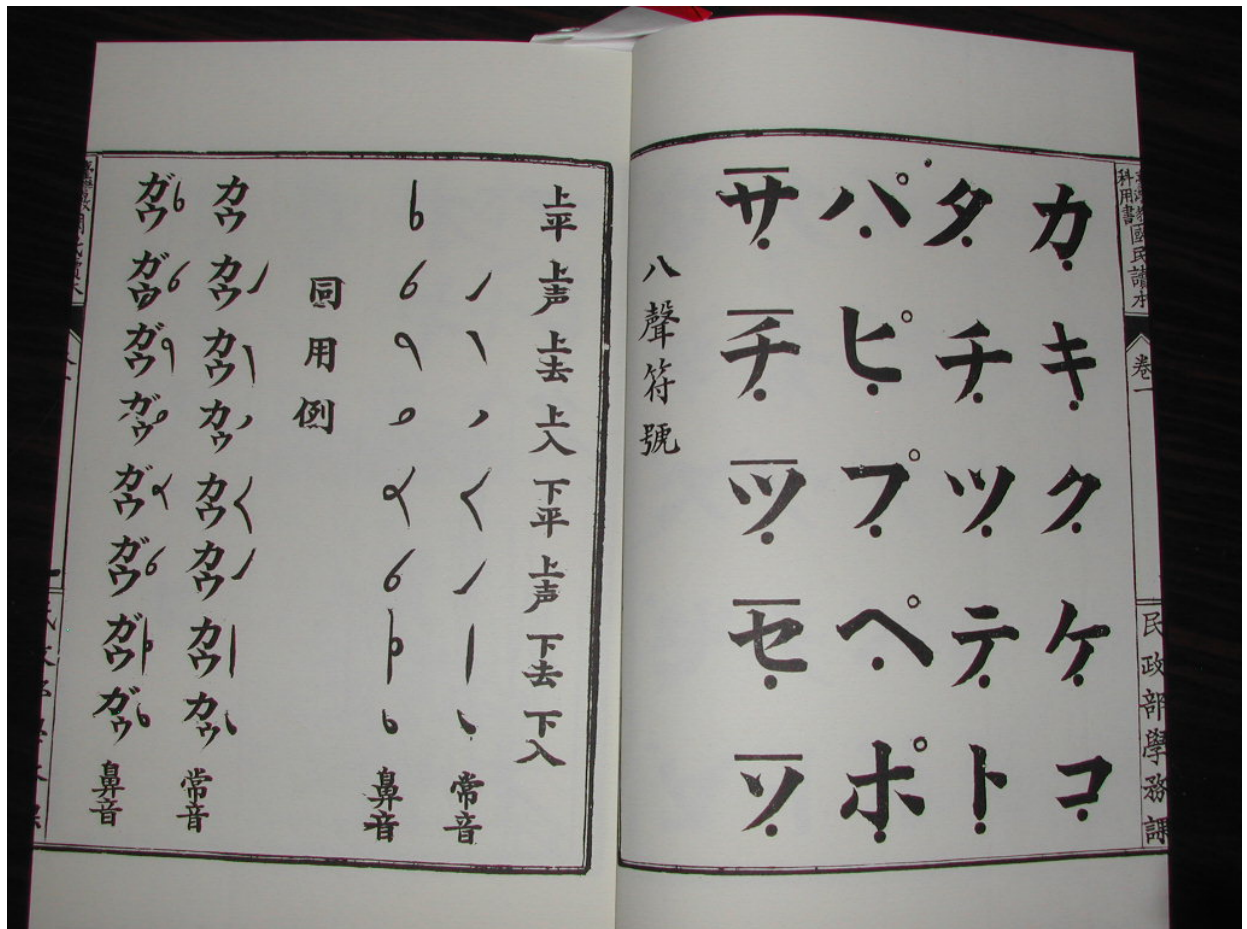 臺灣教科用書國民讀本 卷一 民政部學務課
カ̣ キ̣ ク̣ ケ̣ コ̣
タ̣ チ̣ ツ̣ テ̣ ト̣
パ̣ ピ̣ プ̣ ペ̣ ポ̣
サ̣̅ チ̣̅ ツ̣̅ セ̣̅ ソ̣̅
八聲符號
上平 上声 上去 上入 下平 上声 下去 下入
常音
鼻音
同用例
カウ カウ カウ カゥ カウ カウ カウ カゥ 常音
ガウ ガウ ガウ ガゥ ガウ ガウ ガウ ガゥ 鼻音